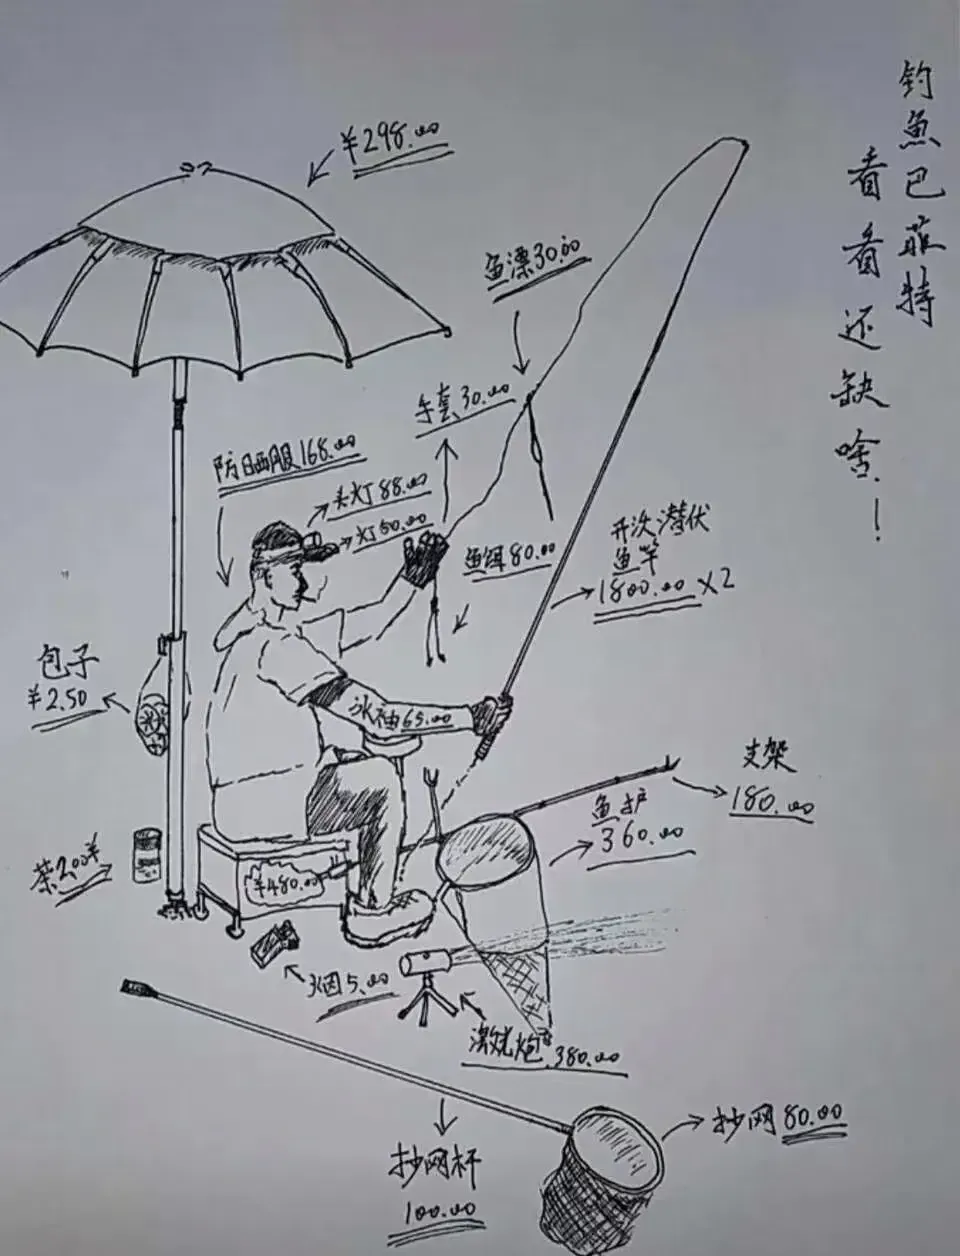 钓魚巴菲特
看看还缺啥！
¥298.00
鱼漂30.00
手套30.00
防晒服168.00
头灯88.00
灯60.00
鱼饵80.00
开次潜伏
鱼竿
1800.00×2
包子
¥2.50
冰袖65.00
支架
180.00
鱼护
360.00
茶2.00¥
¥480.00
烟5.00
激光炮 380.00
抄网80.00
抄网杆
100.00